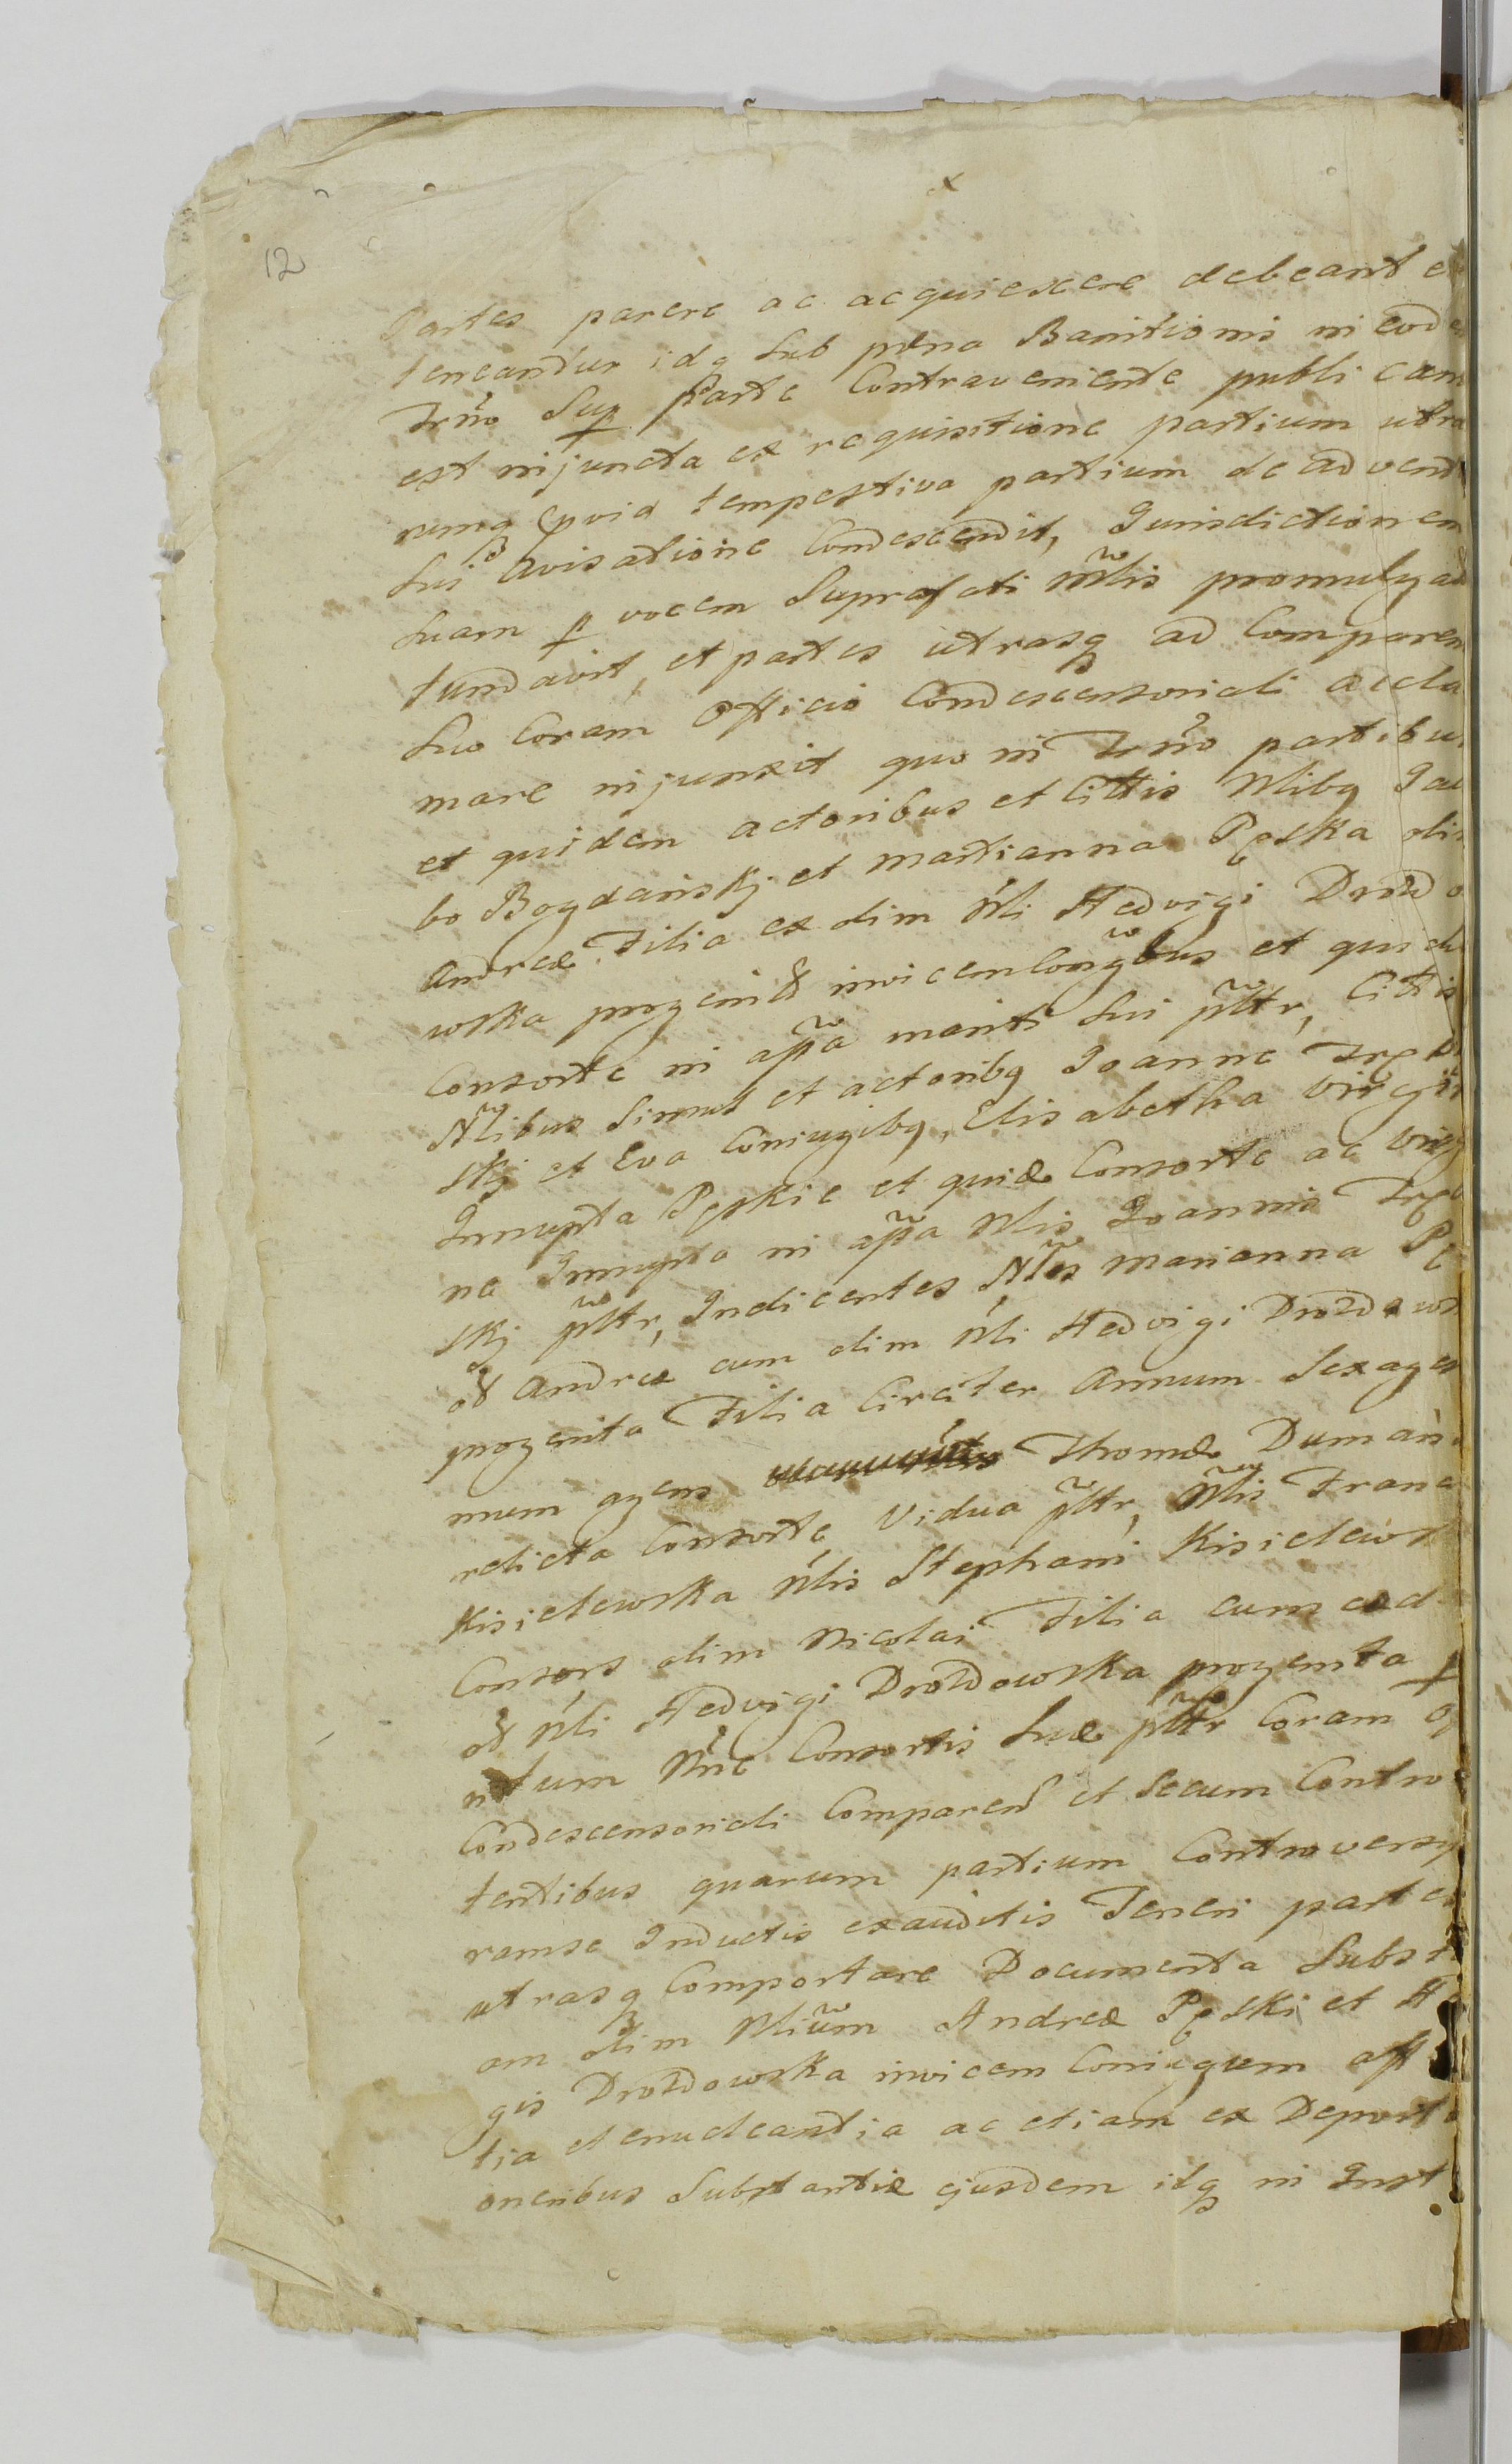 12
Partes parere ac acquiescere debeant et
teneantur idq sub pæna Banitionis in eod
Trno Sup Parte Contraveniente publican
est injuncta ex requisitione partium utra
rumq prvia tempestiva partium de advent
sui avisatione Condescendit, Jurisdictionem
suam p vocem Suprafati Mlis promulgad
fundavit, et partes utrasq ad Comparen
suo Coram Officio Condescensoriali accla
mare injunxit quo in Trno partibus
et quidem actoribus et Cittis Nlibq Jac
bo Bogdański et Marianna Pęska olim
Andreæ Filia ex olim Nli Hedvigi Drozdo
wska progenita invicem Conjgbus et quide
Consorte in assa mariti sui pltr, Cittis
Nlibus simul et actoribq Joanne Tręb
ski et Eva Coniugibq, Elisabetha Virgin
Innupta Pęskie et quidæ Consorte ac virg
ne Innupta in assa Nlis Joannis Tręb
ski pltr, Indicentes Nles Marianna Pę
od Andreæ cum olim Nli Hedvigi Drozdows
progenita Filia Circiter Annum Sexages
mum agens Thomæ Dumań
relicta Consorte Vidua pltr, Nlis Franc
Kisielewska Nlis Stephani Kisielews
Consors olim Nicolai Filia cum ead
od Nli Hedvigi Drozdowska progenita p
natum Nunc Consortis suæ pltr Coram Of
Condescensoriali Comparen et secum Contro
tentibus quarum partium Controversy
ramse Inductis exauditis Teneri partes
utrasq Comportare Documenta Subst
am olim Nlium Andreæ Pęski et H
gis Drozdowska invicem Coniugum aff
tia et enucleantia ac etiam ex Deporta
oneribus Substantiæ ejusdem itq in Inst